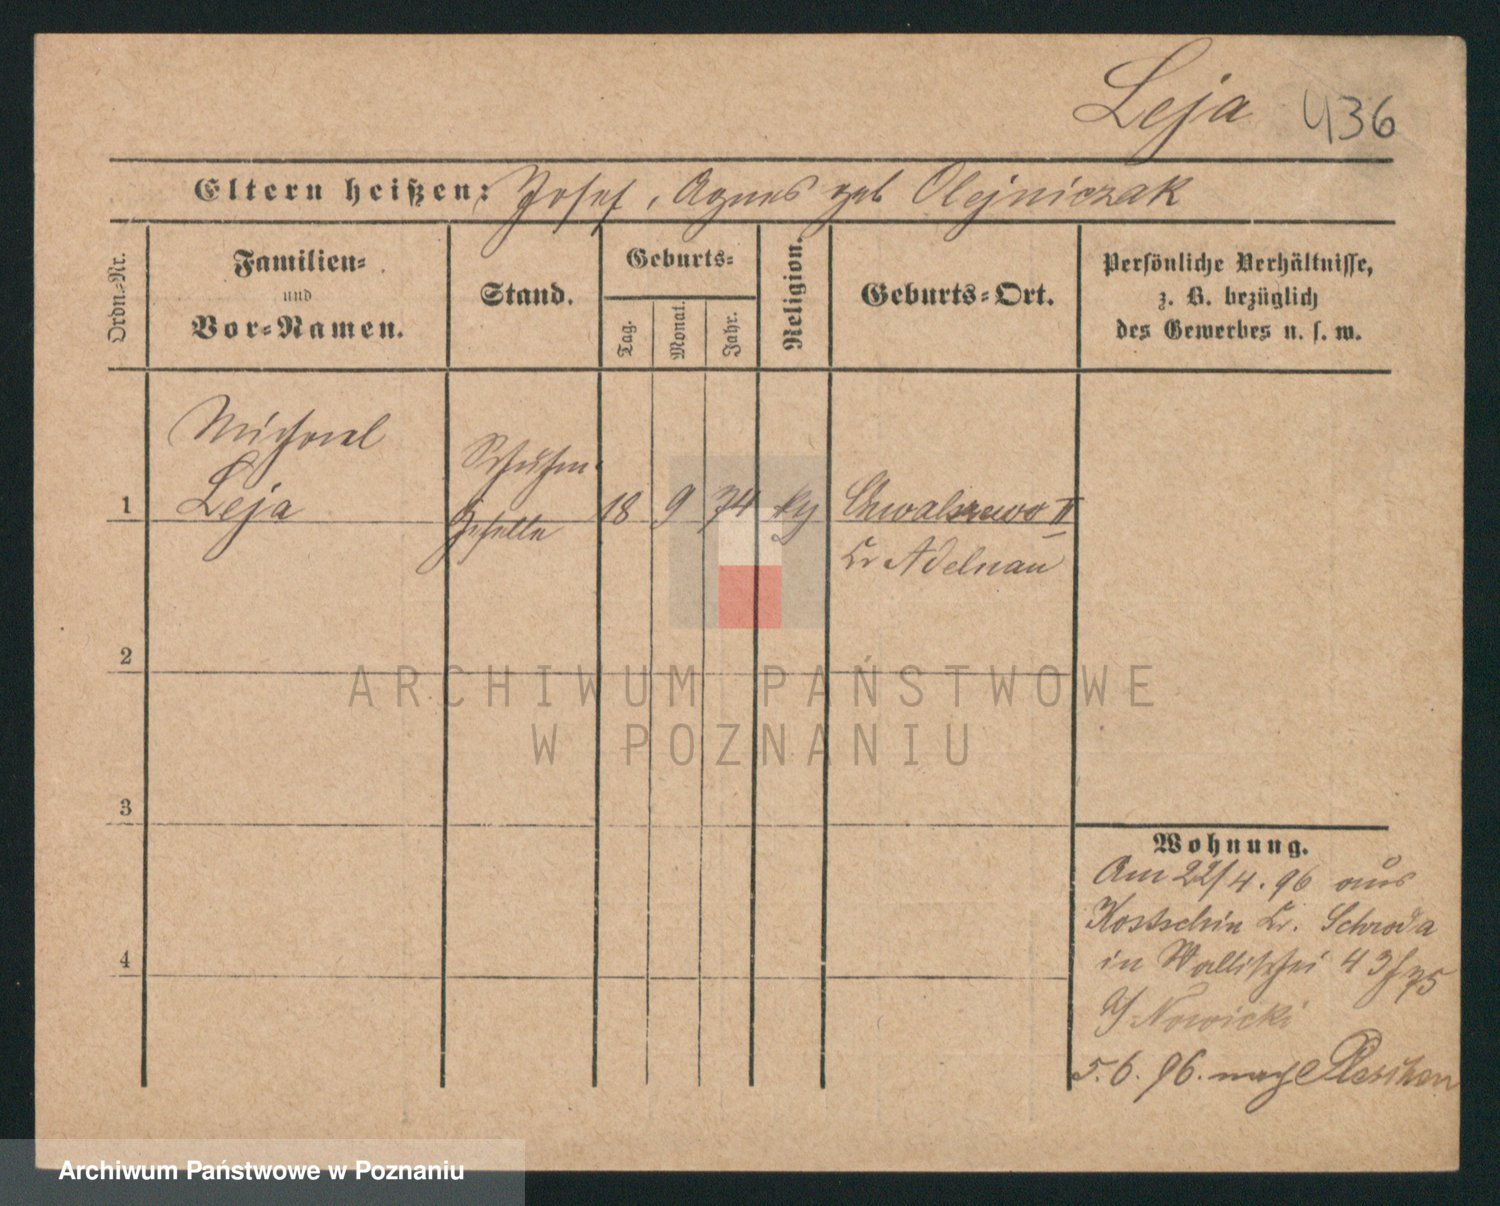 Leja 436
Eltern heißen: Josef, Agnes geb Olejniczak
Ordn.-Nr.
Familien-
und
Vor-Namen.
Stand.
Geburts-
Tag.
Monat.
Jahr.
Religion.
Geburts-Ort.
Persönliche Verhältnisse,
z. B. bezüglich
des Gewerbes u. s. w.
Michael
Leja
Schuhm.
Geselle
1
18 9 74 Chwalszewo II
Kr Adelnau
2
ARCHIWUM PAŃSTWOWE
W POZNANIU
3
4
Wohnung.
Am 22/4. 96 aus
Kostschin Kr. Schroda
in Wallischei 43
Nowicki
5. 6. 96. nach Pleschen
Archiwum Państwowe w Poznaniu